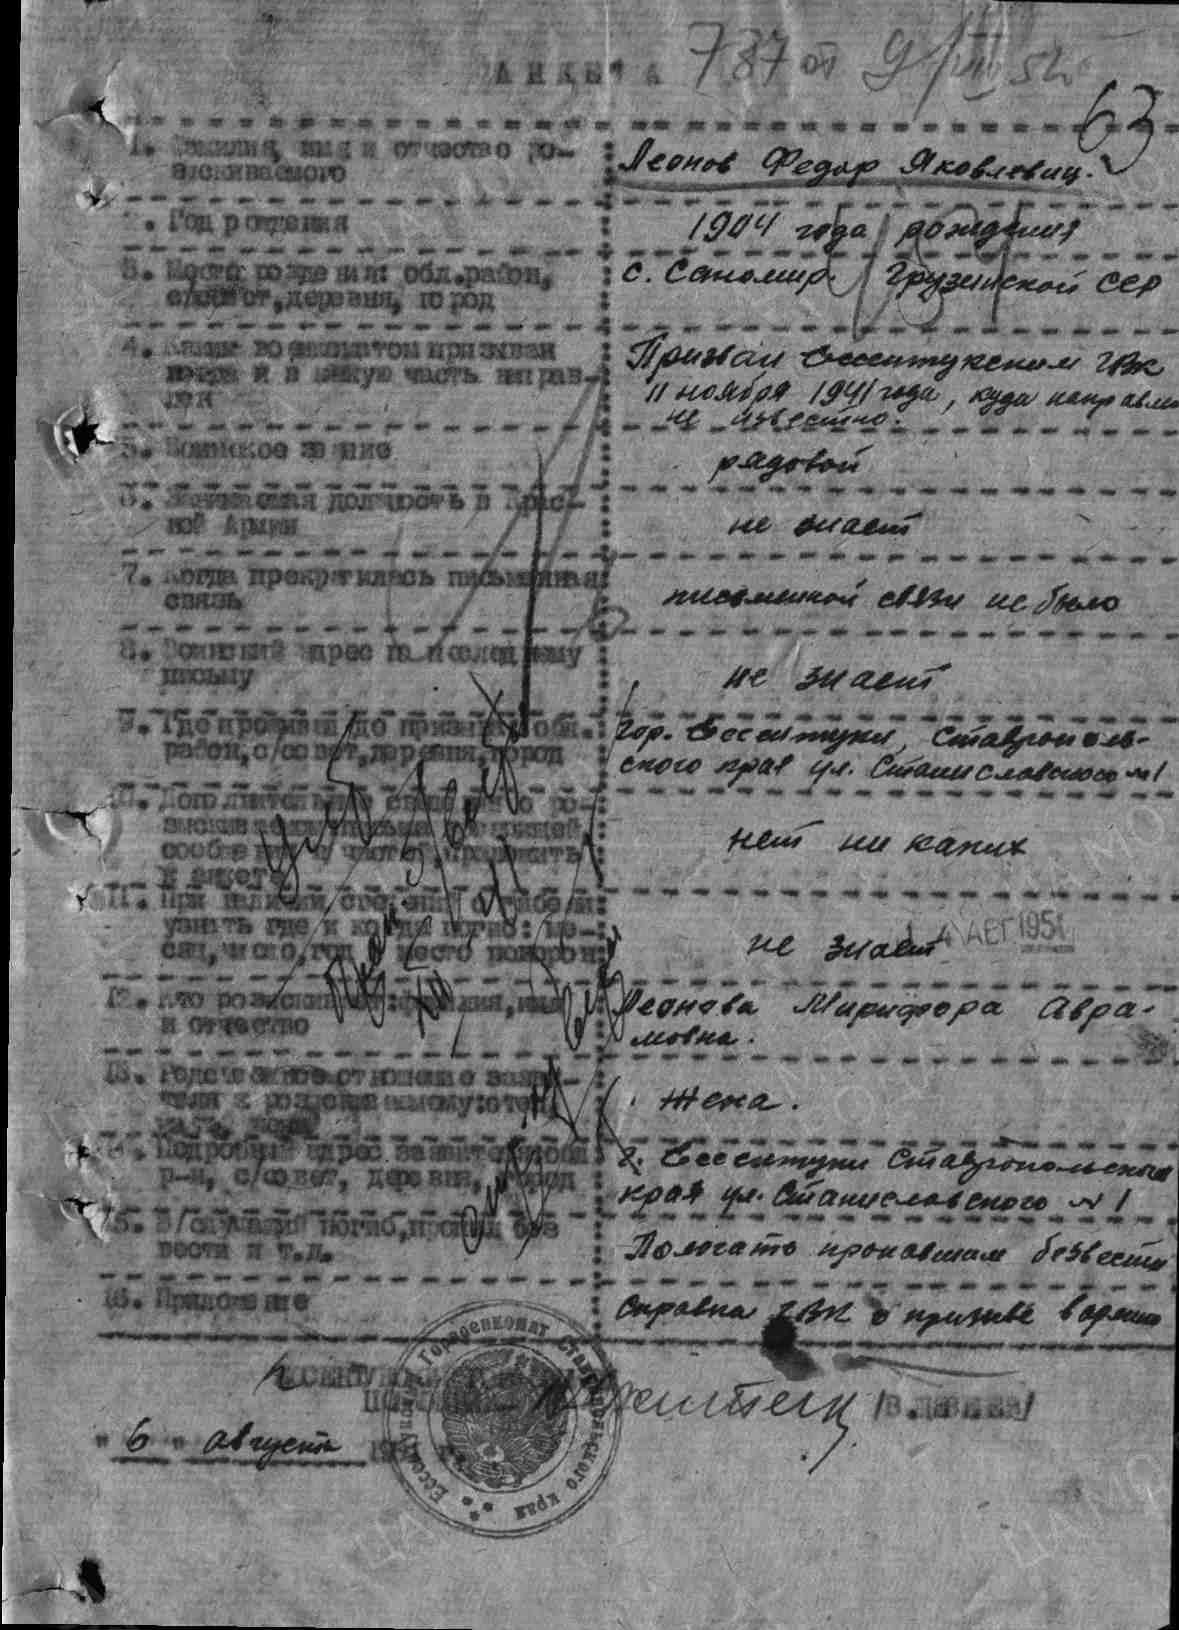 АНКЕТА 737 от 9/VIII 51
63
1. Фамилия, имя и отчество ро-
зыскиваемого
Леонов Федор Яковлевич.
Год рождения
1904 года рождения
3. Место рождения: обл. район,
с/совет, деревня, город
с. Саномир Грузинской ССР
4. Каким военкоматом призван
когда и в какую часть направ-
лен
Призван Ессентукским ГВК
11 ноября 1941 года, куда направлен
не известно.
5. Воинское звание
рядовой
6. Занимаемая должность в Крас-
ной Армии
не знает
7. Когда прекратилась письменная
связь
писменной связи не было
8. Воинский адрес по последнему
письму
не знает
9. Где проживал до призыва: обл.
район, с/совет, деревня, город
гор. Ессентуки, Ставрополь-
ского края ул. Станиславского №1
10. Дополнительные сведения о ро-
сообщения
к анкете
нет ни каких
11. При наличии сведений о гибели
узнать где и когда погиб: ме-
сяц, число, год и место похорон
не знает
4 АВГ 1951
12. Кто розыскивает: фамилия, имя
и отчество
Леонова Мирифора Авра-
мовна.
13. Родственное отношение заяви-
теля к розыскиваемому: отец,
мать, жена
Жена.
14. Подробный адрес заявителя: обл
р-н, с/совет, деревня, город
г. Ессентуки Ставропольского
края ул. Станиславского №1
15. В/служащий погиб, пропал без
вести и т.д.
Пологать пропавшим безвести
16. Приложение
Справка ГВК о призыве в армию
Ессентукский Горвоенкомат Ставропольского края
"6" августа